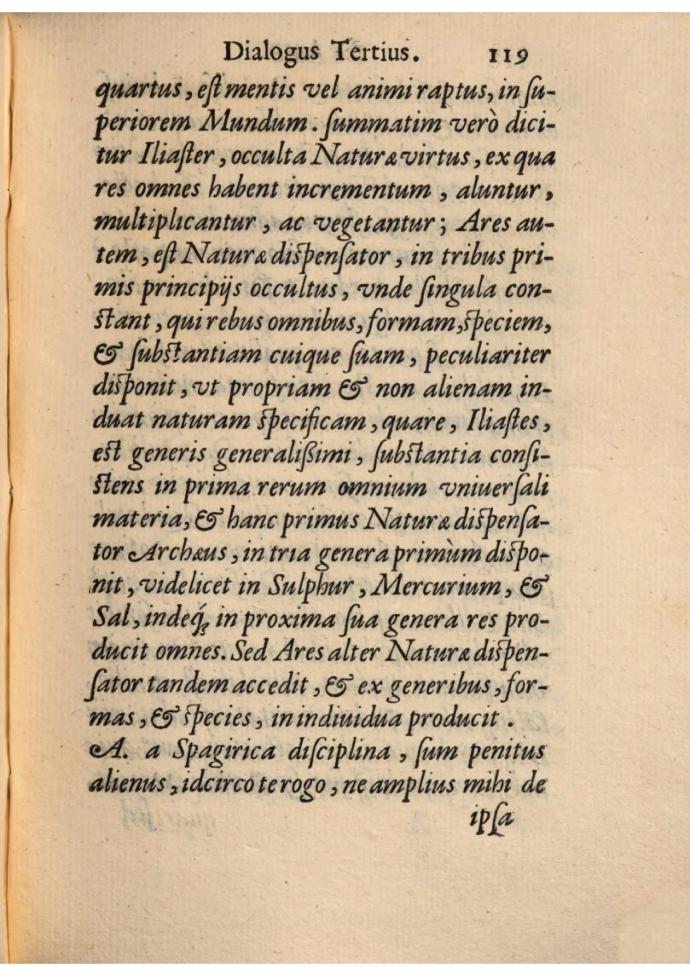 Dialogus Tertius. 119
quartus, eſt mentis vel animi raptus, in ſu-
periorem Mundum. ſummatim verò dici-
tur Iliaſter, occulta Naturæ virtus, ex qua
res omnes habent incrementum, aluntur,
multiplicantur, ac vegetantur; Ares au-
tem, eſt Naturæ diſpenſator, in tribus pri-
mis principijs occultus, vnde ſingula con-
ſtant, qui rebus omnibus, formam, ſpeciem,
& ſubſtantiam cuique ſuam, peculiariter
diſponit, vt propriam & non alienam in-
duat naturam ſpecificam, quare, Iliaſtes,
eſt generis generalißimi, ſubſtantia conſi-
ſtens in prima rerum omnium vniuerſali
materia, & hanc primus Naturæ diſpenſa-
tor Archæus, in tria genera primùm diſpo-
nit, videlicet in Sulphur, Mercurium, &
Sal, indeq́; in proxima ſua genera res pro-
ducit omnes. Sed Ares alter Naturæ diſpen-
ſator tandem accedit, & ex generibus, for-
mas, & ſpecies, in indiuidua producit.
A. a Spagirica diſciplina, ſum penitus
alienus, idcirco te rogo, ne amplius mihi de
ipſa